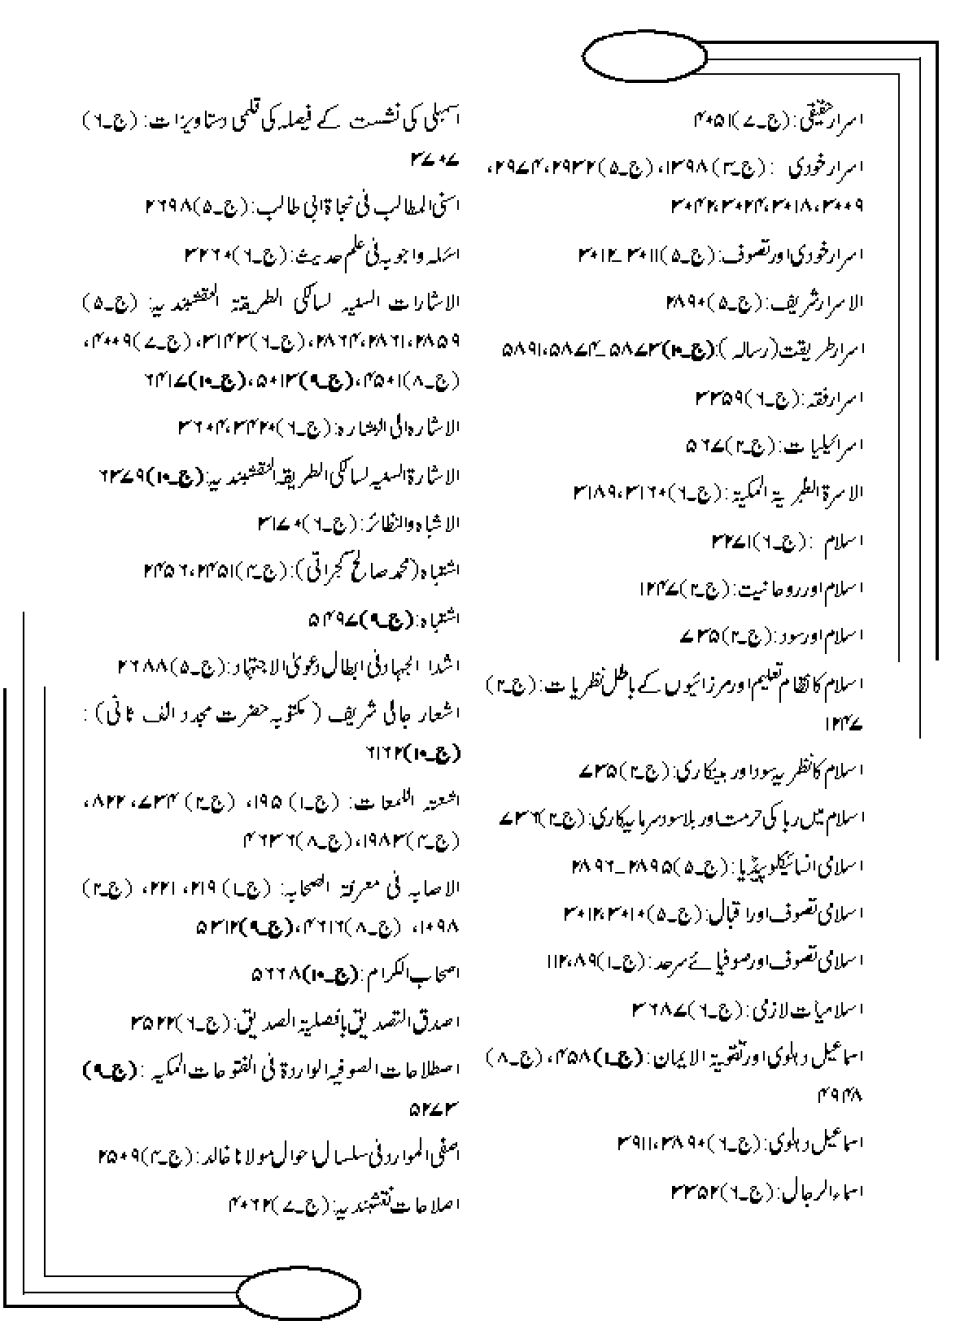 اسرار حقیقی: (ج۔۷) ۴۰۵۱
اسرار خودی : (ج۔۳) ۱۳۹۸، (ج۔۵) ۲۹۳۲، ۲۹۷۴،
۳۰۰۹، ۳۰۱۸، ۳۰۲۴، ۳۰۴۲
اسرار خودی اور تصوف: (ج۔۵) ۳۰۱۱۔۳۰۱۲
الاسرار شریف: (ج۔۵) ۲۸۹۰
اسرار طریقت (رسالہ): (ج۔۱۰) ۵۸۷۳۔۵۸۷۴، ۵۸۹۱
اسرار فقہ: (ج۔۶) ۳۳۵۹
اسرائیلیات: (ج۔۲) ۵۶۷
الاسرۃ الطبریۃ المکیۃ: (ج۔۶) ۳۱۶۰، ۳۱۸۹
اسلام : (ج۔۶) ۳۲۷۱
اسلام اور روحانیت: (ج۔۲) ۱۲۴۷
اسلام اور سود: (ج۔۲) ۷۳۵
اسلام کا نظام تعلیم اور مرزائیوں کے باطل نظریات: (ج۔۲)
۱۲۴۷
اسلام کا نظریہ سود اور بینکاری: (ج۔۲) ۷۳۵
اسلام میں ربا کی حرمت اور بلاسود سرمایہ کاری: (ج۔۲) ۷۳۶
اسلامی انسائیکلوپیڈیا: (ج۔۵) ۲۸۹۵۔۲۸۹۶
اسلامی تصوف اور اقبال: (ج۔۵) ۳۰۱۰، ۳۰۱۲
اسلامی تصوف اور صوفیائے سرحد: (ج۔۱) ۸۹، ۱۱۲
اسلامیات لازمی: (ج۔۶) ۳۶۸۷
اسماعیل دہلوی اور تقویۃ الایمان: (ج۔۱) ۴۵۸، (ج۔۸)
۴۹۴۸
اسماعیل دہلوی: (ج۔۶) ۳۸۹۰، ۳۹۱۱
اسماء الرجال: (ج۔۶) ۳۳۵۲
اسمبلی کی نشست کے فیصلہ کی قلمی دستاویزات: (ج۔۶)
۳۷۰۷
اسنی المطالب فی نجاۃ ابی طالب: (ج۔۵) ۲۶۹۸
اسئلہ واجوبہ فی علم حدیث: (ج۔۶) ۳۲۶۰
الاشارات السنیہ لسالکی الطریقۃ النقشبندیہ: (ج۔۵)
۲۸۵۹، ۲۸۶۱، ۲۸۶۴، (ج۔۶) ۳۱۴۳، (ج۔۷) ۴۰۰۹،
(ج۔۸) ۴۵۰۱، (ج۔۹) ۵۰۱۳، (ج۔۱۰) ۶۴۱۷
الاشارہ الی البشارہ: (ج۔۶) ۳۴۲۰، ۳۶۰۴
الاشارۃ السنیہ لسالکی الطریقہ النقشبندیہ: (ج۔۱۰) ۶۳۷۹
الاشباہ والنظائر: (ج۔۶) ۳۱۷۰
اشتباہ (محمد صالح گجراتی): (ج۔۴) ۲۴۵۱، ۲۴۵۶
اشتباہ: (ج۔۹) ۵۴۹۷
اشد الجہاد فی ابطال دعویٰ الاجتہاد: (ج۔۵) ۲۶۸۸
اشعار جالی شریف (مکتوبہ حضرت مجدد الف ثانی) :
(ج۔۱۰) ۶۱۶۲
اشعتہ اللمعات: (ج۔۱) ۱۹۵، (ج۔۲) ۷۳۴، ۸۲۲،
(ج۔۴) ۱۹۸۳، (ج۔۸) ۴۶۳۶
الاصابہ فی معرفۃ الصحابہ: (ج۔۱) ۲۱۹، ۲۲۱، (ج۔۲)
۱۰۹۸، (ج۔۸) ۴۶۱۶، (ج۔۹) ۵۳۱۲
اصحاب الکرام: (ج۔۱۰) ۵۶۶۸
اصدق التصدیق بافضلیۃ الصدیق: (ج۔۶) ۳۵۲۲
اصطلاحات الصوفیہ الواردۃ فی الفتوحات المکیہ: (ج۔۹)
۵۲۷۳
اصفی الموارد فی سلسال احوال مولانا خالد: (ج۔۴) ۲۵۰۹
اصلاحات نقشبندیہ: (ج۔۷) ۴۰۶۲